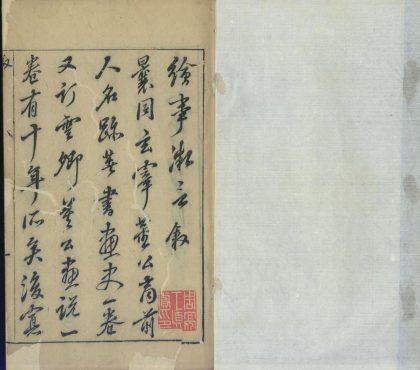 繪事微言敘
曩同玄宰董公商前
人名跡書畫史一卷
又訂雲卿莫公畫說一
卷有十年所矣後